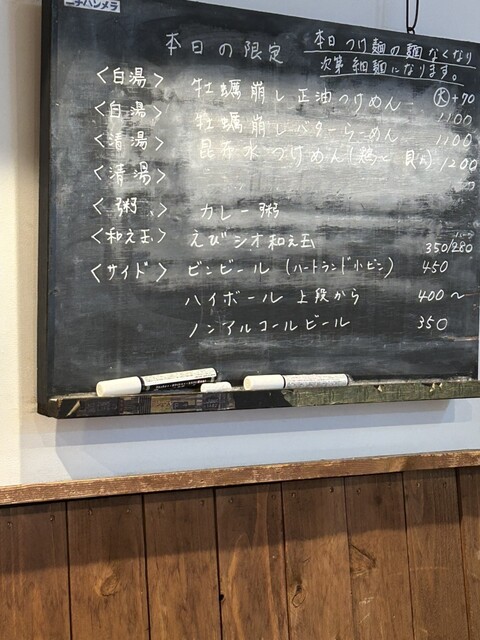 ニチバンメラ
本日の限定
本日つけ麺の麺なくなり
次第細麺になります。
<白湯> 牡蠣崩し正油つけめん 大+70 1100
<白湯> 牡蠣崩しバターらーめん 1100
<清湯> 昆布水つけめん(鶏と貝) 1200
<清湯>
<粥> カレー粥
<和え玉> えびシオ和え玉 350/280
<サイド> ビンビール (ハートランド小ビン) 450
ハイボール 上段から 400〜
ノンアルコールビール 350